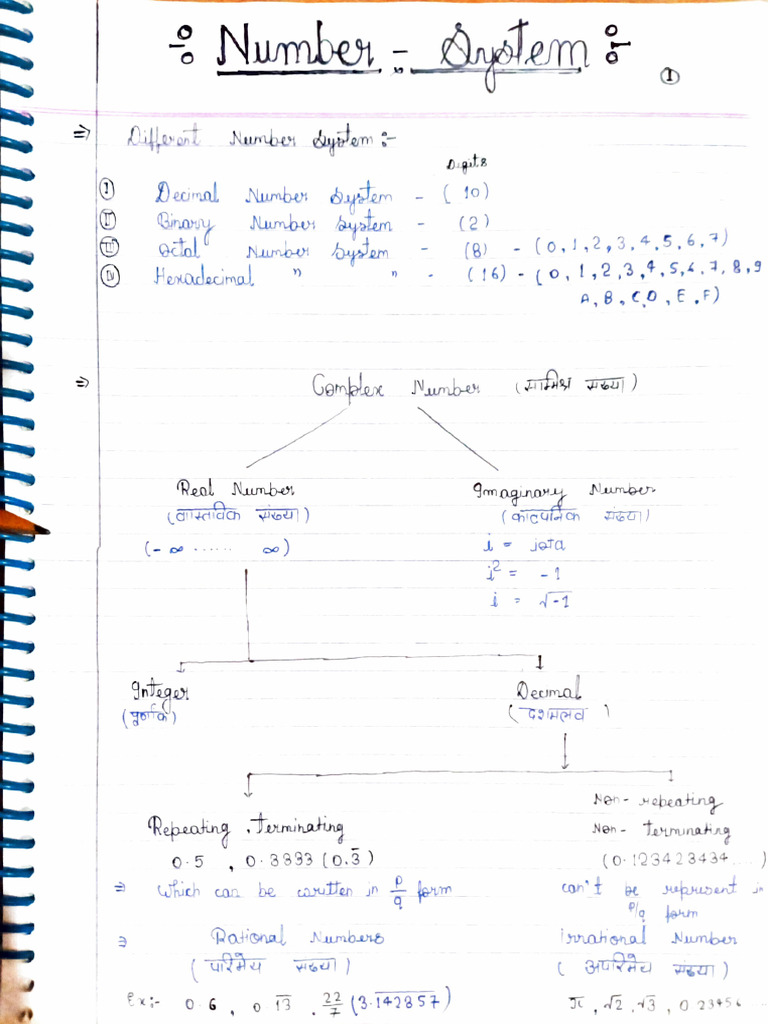 ÷ Number - System ÷
①
⇒ Different Number System :-
Digits
Ⓘ Decimal Number System - (10)
Ⅱ Binary Number System - (2)
Ⅲ Octal Number System - (8) - (0,1,2,3,4,5,6,7)
Ⅳ Hexadecimal " " - (16) - (0,1,2,3,4,5,6,7,8,9
A,B,C,D,E,F)
⇒ Complex Number (सामिश्र संख्या)
Real Number Imaginary Number
(वास्तविक संख्या) (काल्पनिक संख्या)
(-∞ ...... ∞) i = iota
i² = -1
i = √-1
Integer Decimal
(पूर्णांक) (दशमलव)
Non-repeating
Repeating, Terminating Non-terminating
0.5, 0.3333 (0.3̅) (0.123423434....)
⇒ Which can be written in p/q form can't be represent in
p/q form
⇒ Rational Numbers irrational Number
(परिमेय संख्या) (अपरिमेय संख्या)
Ex:- 0.6, 0.1̅3̅, 22/7 (3.1̅4̅2̅8̅5̅7̅) π, √2, √3, 0.23456